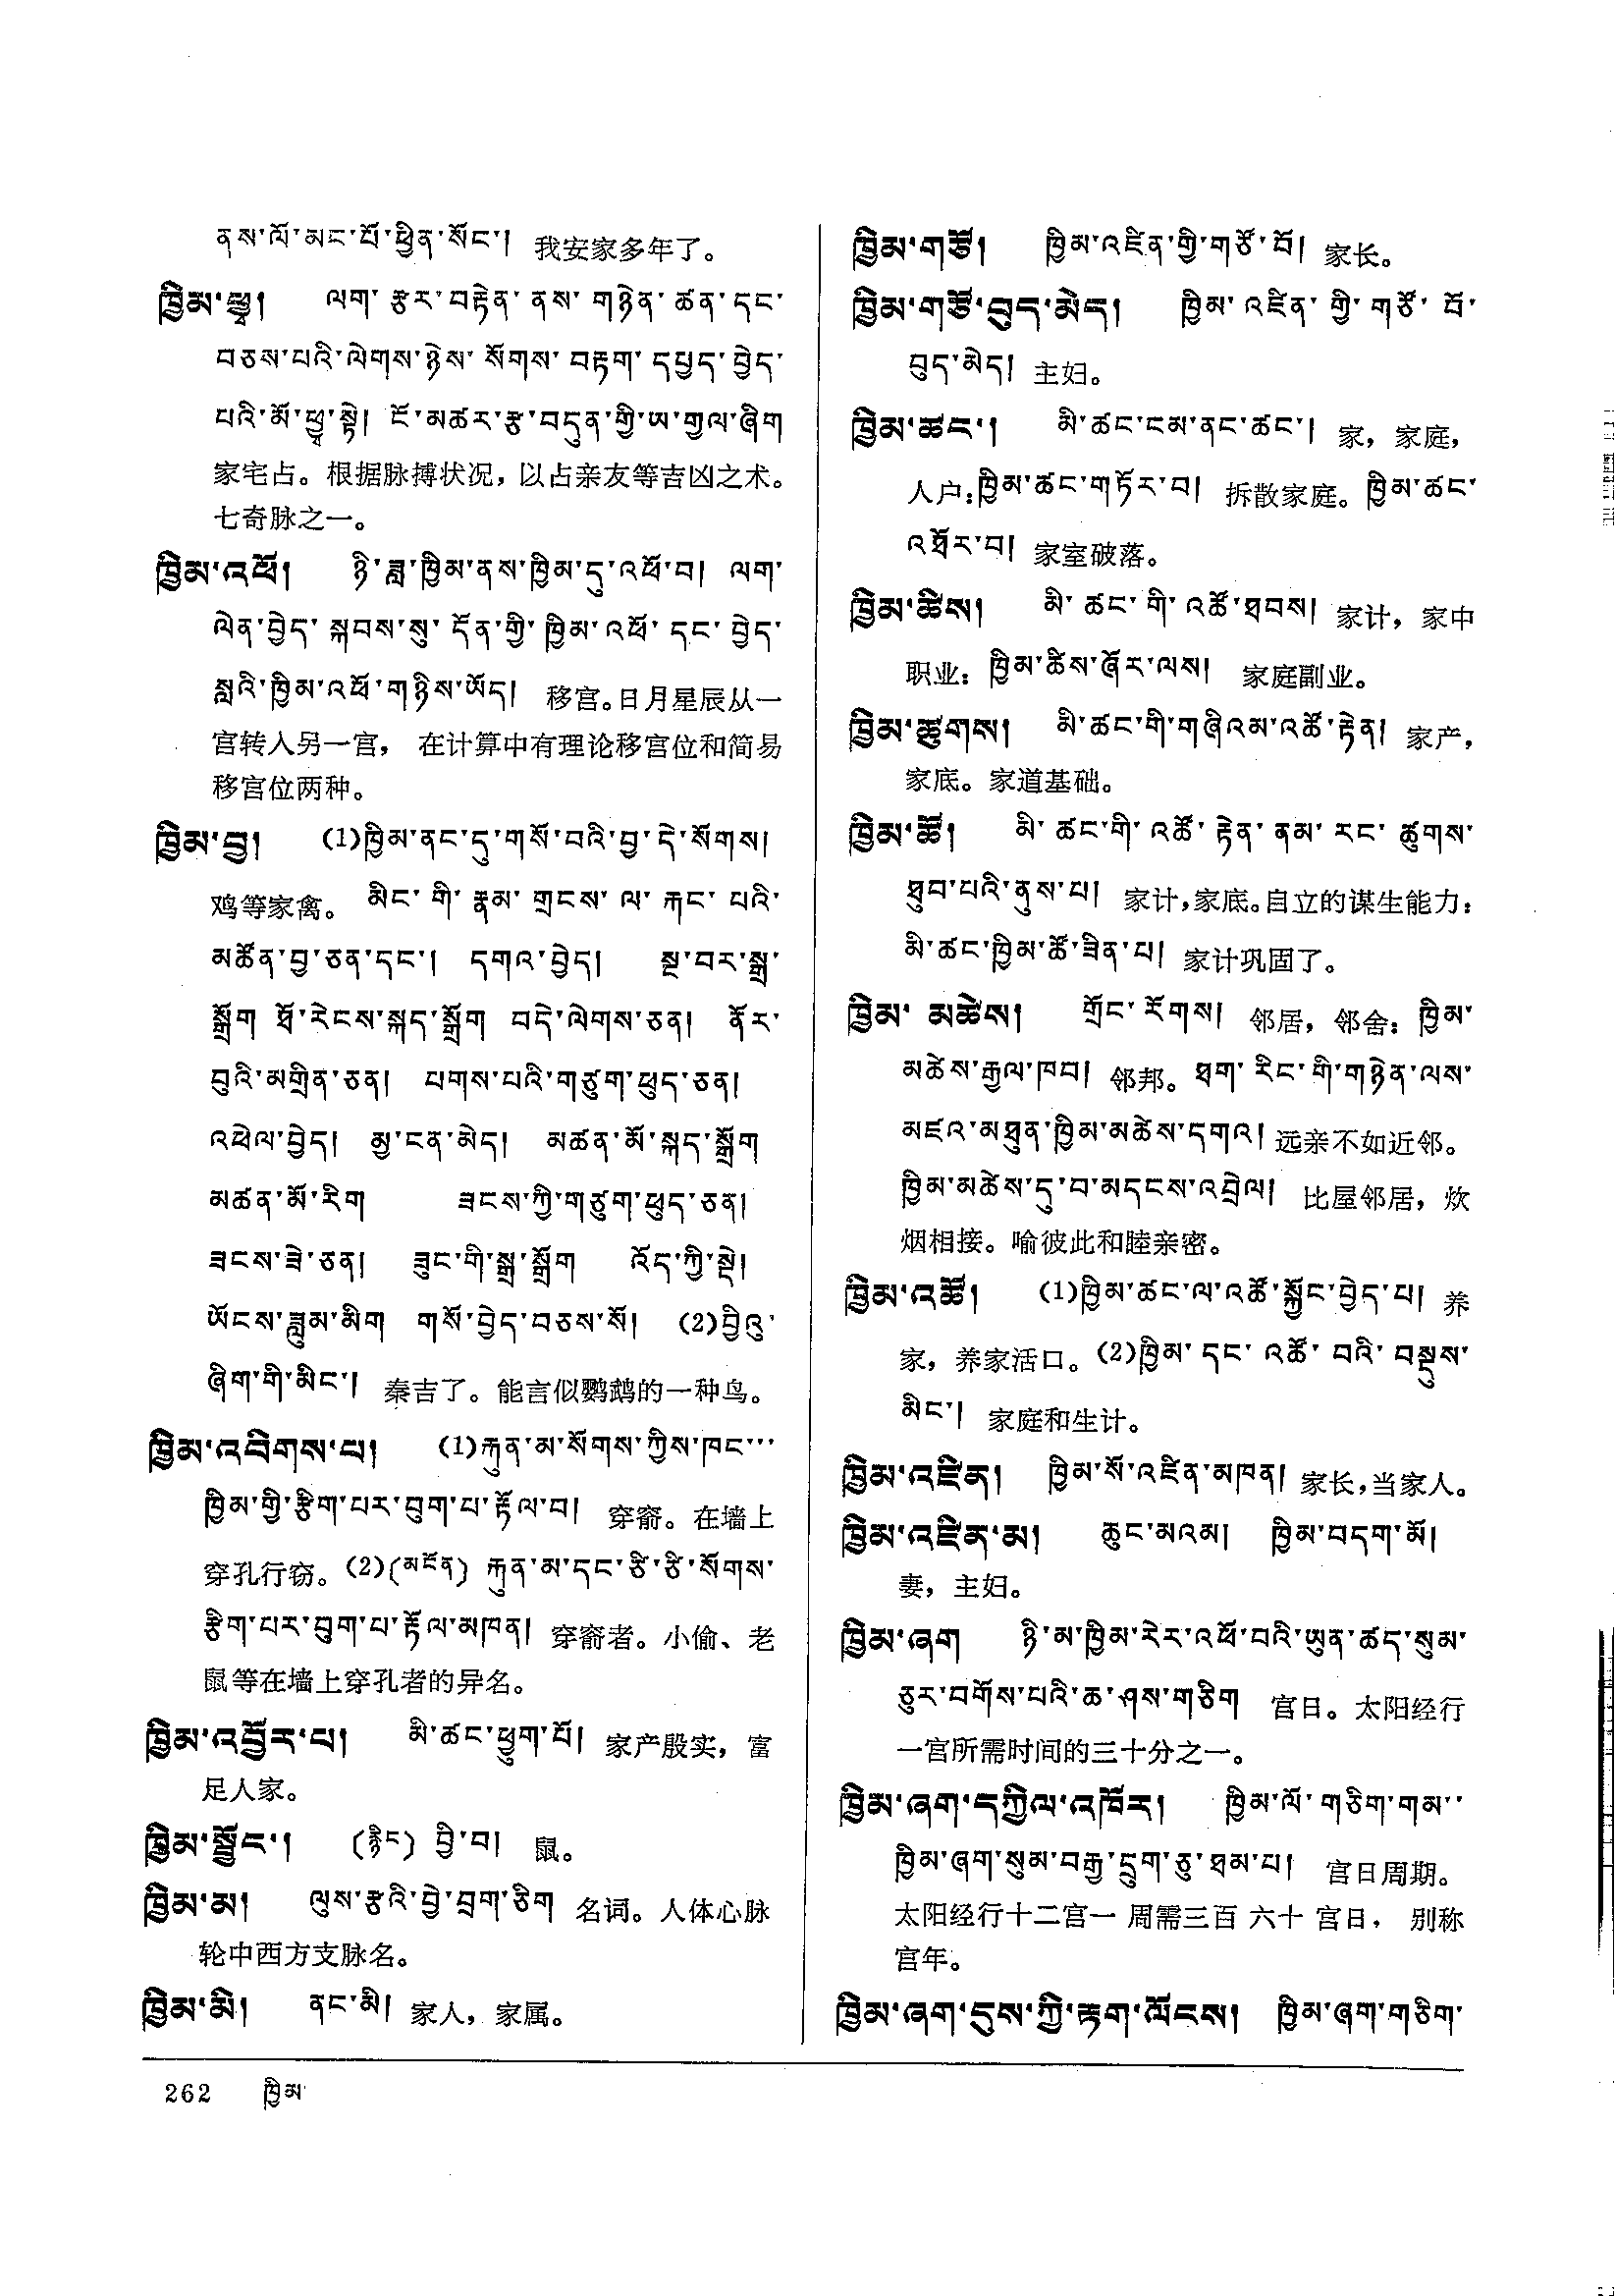 ནས་ལོ་མང་པོ་ཕྱིན་སོང་། 我安家多年了。
ཁྱིམ་ཕྱྭ། ལག་ རྩར་བརྟེན་ ནས་ གཉེན་ ཚན་དང་
བཅས་པའི་ལེགས་ཉེས་ སོགས་ བརྟག་ དཔྱད་བྱེད་
པའི་མོ་ཕྱྭ་སྟེ། ངོ་མཚར་རྩ་བདུན་གྱི་ཡ་གྱལ་ཞིག
家宅占。根据脉搏状况，以占亲友等吉凶之术。
七奇脉之一。
ཁྱིམ་འཕོ། ཉི་ཟླ་ཁྱིམ་ནས་ཁྱིམ་དུ་འཕོ་བ། ལག་
ལེན་བྱེད་ སྐབས་སུ་ དོན་གྱི་ ཁྱིམ་འཕོ་ དང་ བྱེད་
སླའི་ཁྱིམ་འཕོ་གཉིས་ཡོད། 移宫。日月星辰从一
宫转入另一宫， 在计算中有理论移宫位和简易
移宫位两种。
ཁྱིམ་བྱ། (1)ཁྱིམ་ནང་དུ་གསོ་བའི་བྱ་དེ་སོགས།
鸡等家禽。 མིང་ གི་ རྣམ་ གྲངས་ ལ་ རྐང་ པའི་
མཚོན་བྱ་ཅན་དང་། དགའ་བྱེད། སྔ་བར་སྒྲ་
སྒྲོག ཐོ་རེངས་སྐད་སྒྲོག བདེ་ལེགས་ཅན། ནོར་
བུའི་མགྲིན་ཅན། པགས་པའི་གཙུག་ཕུད་ཅན།
འཕེལ་བྱེད། མྱ་ངན་མེད། མཚན་མོ་སྐད་སྒྲོག
མཚན་མོ་རིག ཟངས་ཀྱི་གཙུག་ཕུད་ཅན།
ཟངས་ཟེ་ཅན། ཟུང་གི་སྒྲ་སྒྲོག འོད་ཀྱི་སྡེ།
ཡོངས་ཟླུམ་མིག གསོ་བྱེད་བཅས་སོ། (2)བྱིའུ་
ཞིག་གི་མིང་། 秦吉了。能言似鹦鹉的一种鸟。
ཁྱིམ་འབིགས་པ། (1)རྐུན་མ་སོགས་ཀྱིས་ཁང་་་
ཁྱིམ་གྱི་རྩིག་པར་བུག་པ་རྟོལ་བ། 穿窬。在墙上
穿孔行窃。(2)(མངོན) རྐུན་མ་དང་ཙི་ཙི་སོགས་
རྩིག་པར་བུག་པ་རྟོལ་མཁན། 穿窬者。小偷、老
鼠等在墙上穿孔者的异名。
ཁྱིམ་འབྱོར་པ། མི་ཚང་ཕྱུག་པོ། 家产殷实，富
足人家。
ཁྱིམ་སྦྱོང་། (རྙིང) བྱི་བ། 鼠。
ཁྱིམ་མ། ལུས་རྩའི་བྱེ་བྲག་ཅིག 名词。人体心脉
轮中西方支脉名。
ཁྱིམ་མི། ནང་མི། 家人，家属。
ཁྱིམ་གཙོ། ཁྱིམ་འཛིན་གྱི་གཙོ་བོ། 家长。
ཁྱིམ་གཙོ་བུད་མེད། ཁྱིམ་ འཛིན་ གྱི་ གཙོ་ བོ་
བུད་མེད། 主妇。
ཁྱིམ་ཚང་། མི་ཚང་ངམ་ནང་ཚང་། 家，家庭，
人户：ཁྱིམ་ཚང་གཏོར་བ། 拆散家庭。ཁྱིམ་ཚང་
འཐོར་བ། 家室破落。
ཁྱིམ་ཚིས། མི་ ཚང་ གི་ འཚོ་ཐབས། 家计，家中
职业：ཁྱིམ་ཚིས་ཞོར་ལས། 家庭副业。
ཁྱིམ་ཚུགས། མི་ཚང་གི་གཞིའམ་འཚོ་རྟེན། 家产，
家底。家道基础。
ཁྱིམ་ཚོ། མི་ ཚང་གི་ འཚོ་ རྟེན་ ནམ་ རང་ ཚུགས་
ཐུབ་པའི་ནུས་པ། 家计，家底。自立的谋生能力：
མི་ཚང་ཁྱིམ་ཚོ་ཟིན་པ། 家计巩固了。
ཁྱིམ་ མཚེས། གྲོང་ རོགས། 邻居，邻舍：ཁྱིམ་
མཚེས་རྒྱལ་ཁབ། 邻邦。ཐག་ རིང་གི་གཉེན་ལས་
མཛའ་མཐུན་ཁྱིམ་མཚེས་དགའ། 远亲不如近邻。
ཁྱིམ་མཚེས་དུ་བ་མདངས་འབྲེལ། 比屋邻居，炊
烟相接。喻彼此和睦亲密。
ཁྱིམ་འཚོ། (1)ཁྱིམ་ཚང་ལ་འཚོ་སྐྱོང་བྱེད་པ། 养
家，养家活口。(2)ཁྱིམ་ དང་ འཚོ་ བའི་ བསྡུས་
མིང་། 家庭和生计。
ཁྱིམ་འཛིན། ཁྱིམ་སོ་འཛིན་མཁན། 家长，当家人。
ཁྱིམ་འཛིན་མ། ཆུང་མའམ། ཁྱིམ་བདག་མོ།
妻，主妇。
ཁྱིམ་ཞག ཉི་མ་ཁྱིམ་རེར་འཕོ་བའི་ཡུན་ཚད་སུམ་
ཅུར་བགོས་པའི་ཆ་ཤས་གཅིག 宫日。太阳经行
一宫所需时间的三十分之一。
ཁྱིམ་ཞག་དཀྱིལ་འཁོར། ཁྱིམ་ལོ་ གཅིག་གམ་་
ཁྱིམ་ཞག་སུམ་བརྒྱ་དྲུག་ཅུ་ཐམ་པ། 宫日周期。
太阳经行十二宫一 周需三百 六十 宫日， 别称
宫年。
ཁྱིམ་ཞག་དུས་ཀྱི་རྟག་ལོངས། ཁྱིམ་ཞག་གཅིག་
262 ཁྱིམ་